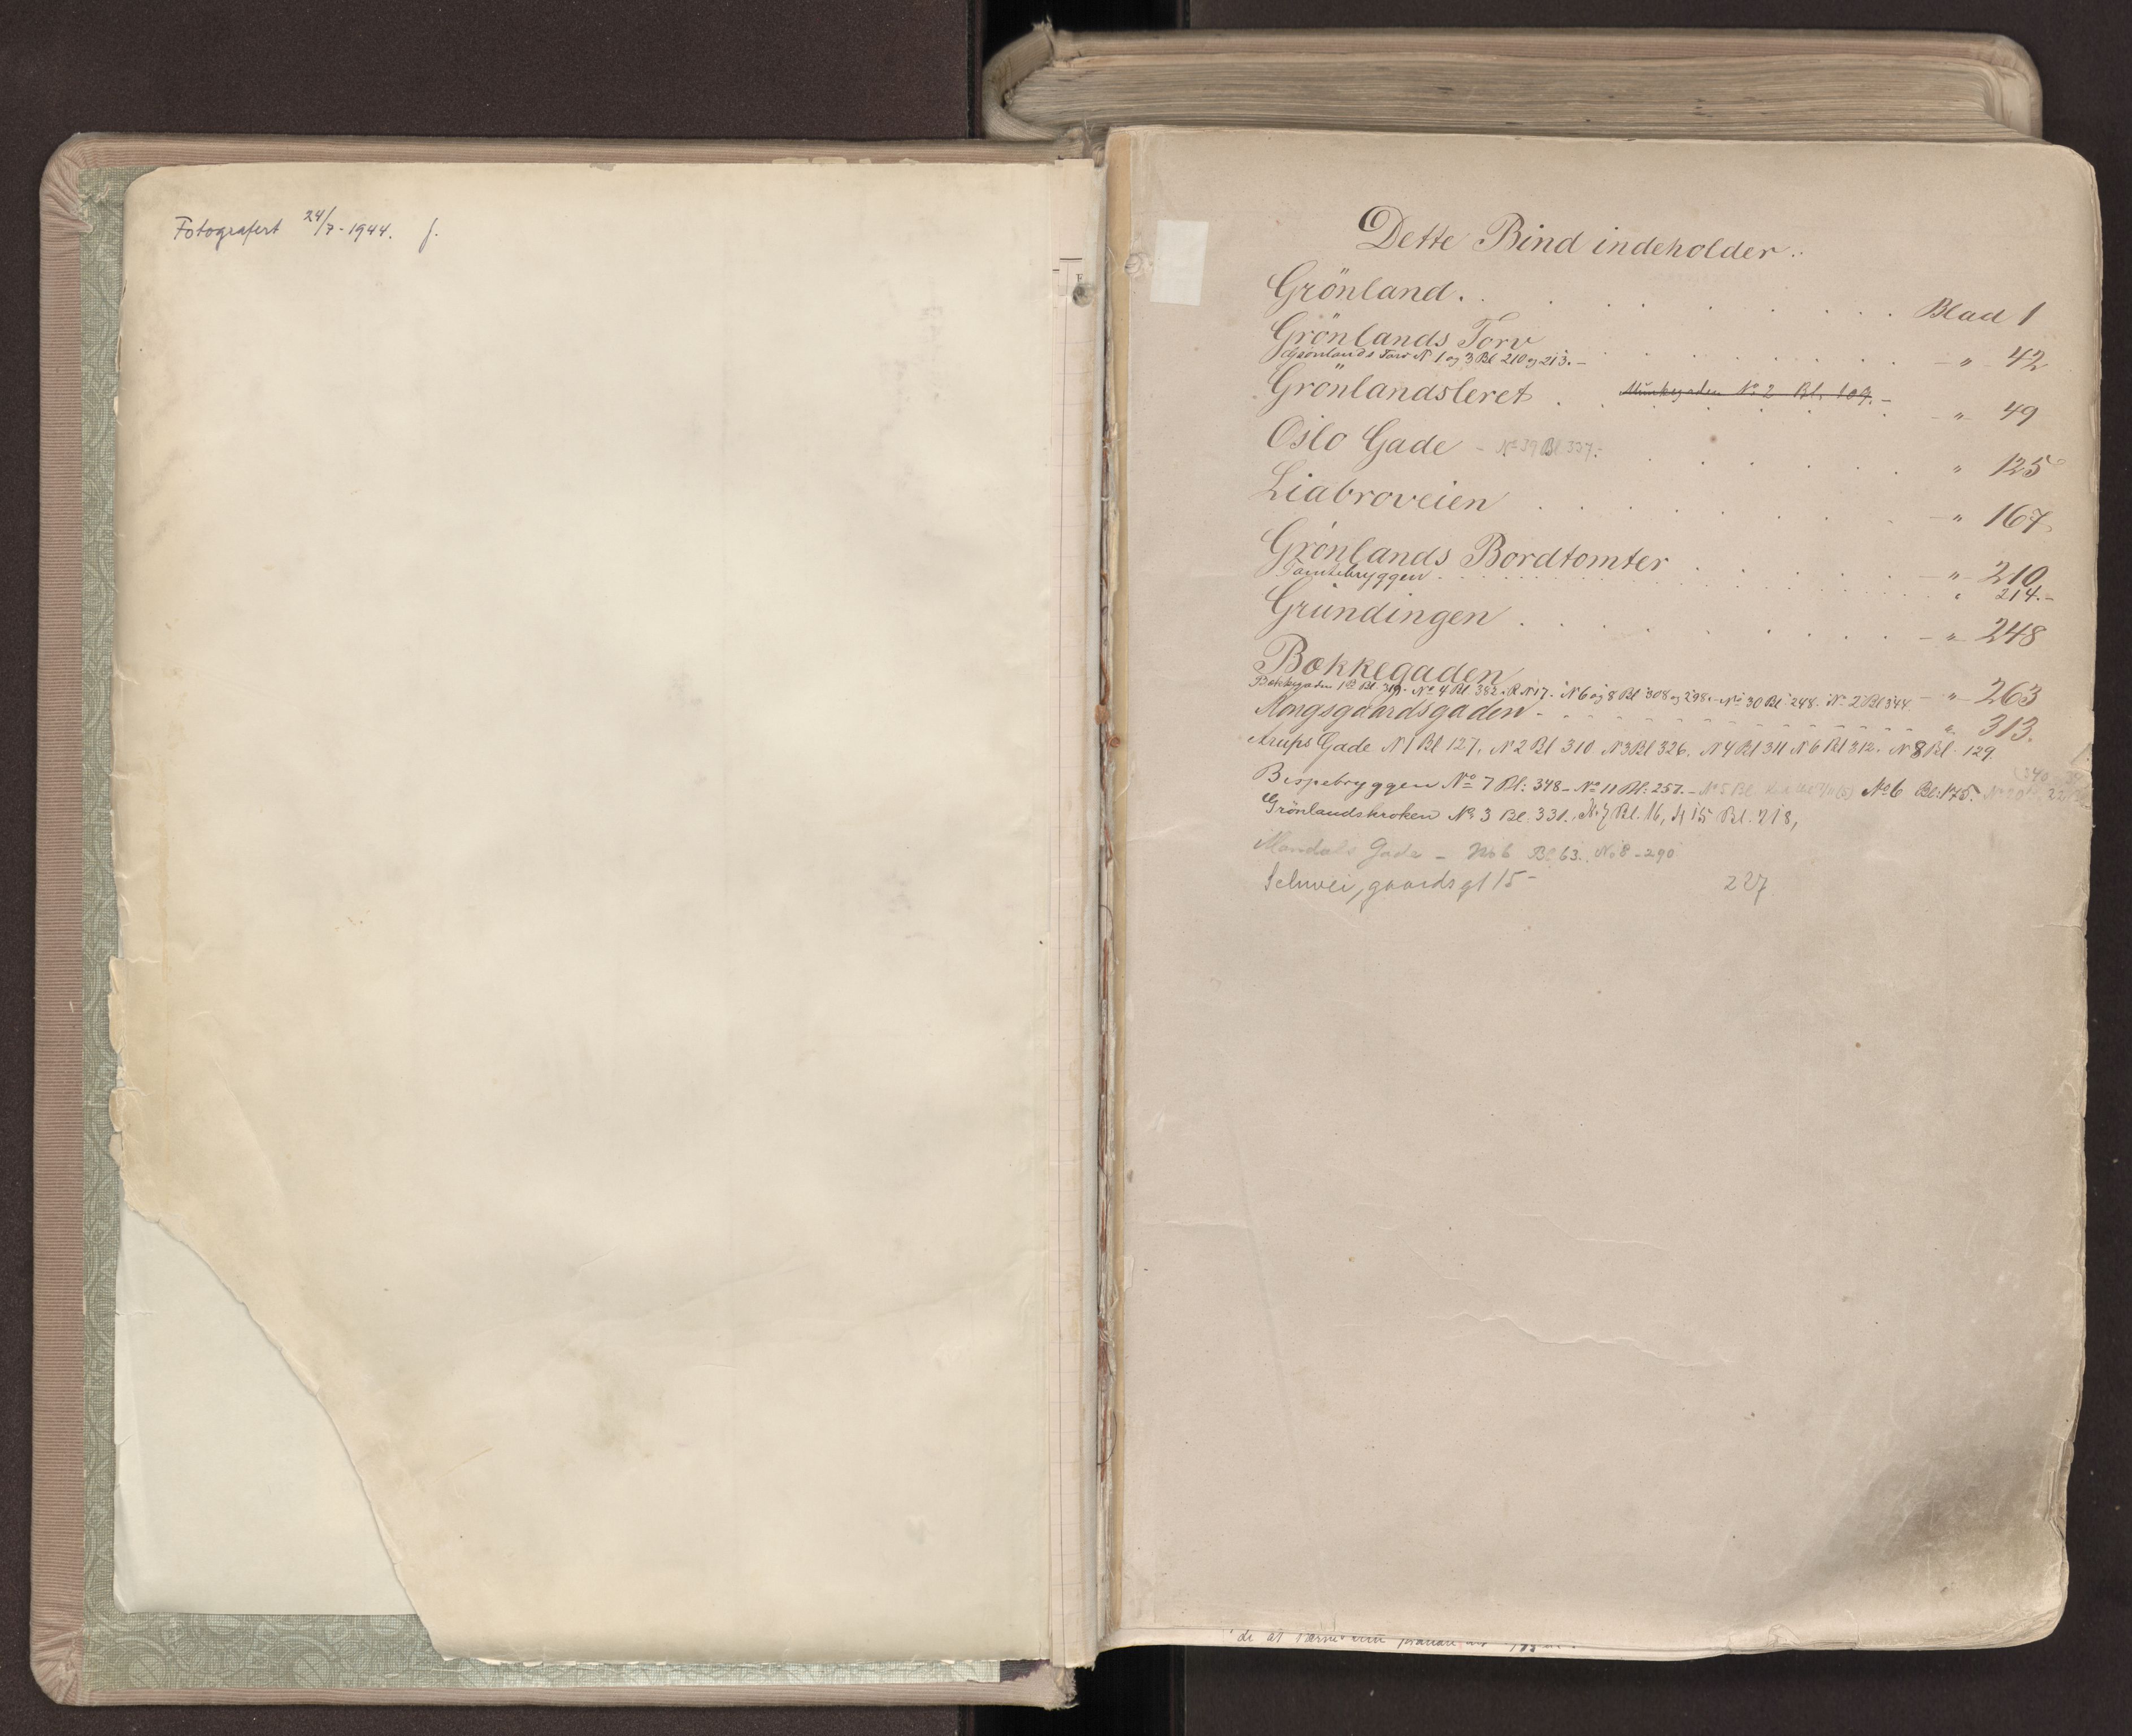 Fotografert 24/7-1944. f.
Dette Bind indeholder:
Grönland. . . . . . . . Blad 1
Grönlands Torv . . . . . . . „ 42
Grönlands Torv N 1 og 3 Bl 210 og 213.-
Grönlandsleret . . . Munkegaden No 2 Bl. 109.- „ 49
Oslo Gade - No 39 Bl 337. . . . . . „ 125
Liabroveien . . . . . . . „ 167
Grönlands Bordtomter . . . . „ 210
Tomtebryggen . . . . . . „ 214.-
Gründingen . . . . . . . „ 248
Bokkegaden „ 263
Bokkegaden Bl. 319. No 4 Bl 382. N 17. N 6 og 8 Bl 308 og 298. No 30 Bl 248. No 2 Bl 344
Kongsgaardsgaden - - - - - - „ 313.
Arups Gade N 1 Bl 127, N 2 Bl 310 N 3 Bl 326. N 4 Bl 311 N 6 Bl 312. N 8 Bl. 129.
Bispebryggen No 7 Bl: 348 - No 11 Bl: 257. - No 5 Bl. No 6 Bl: 175.
Grönlandskroken No 3 Bl. 331. N. 7 Bl. 16, N 15 Bl. 218,
Mandals Gade - No 6 Bl 63. No 8 - 290
Schweigaardsgt 15 - 227